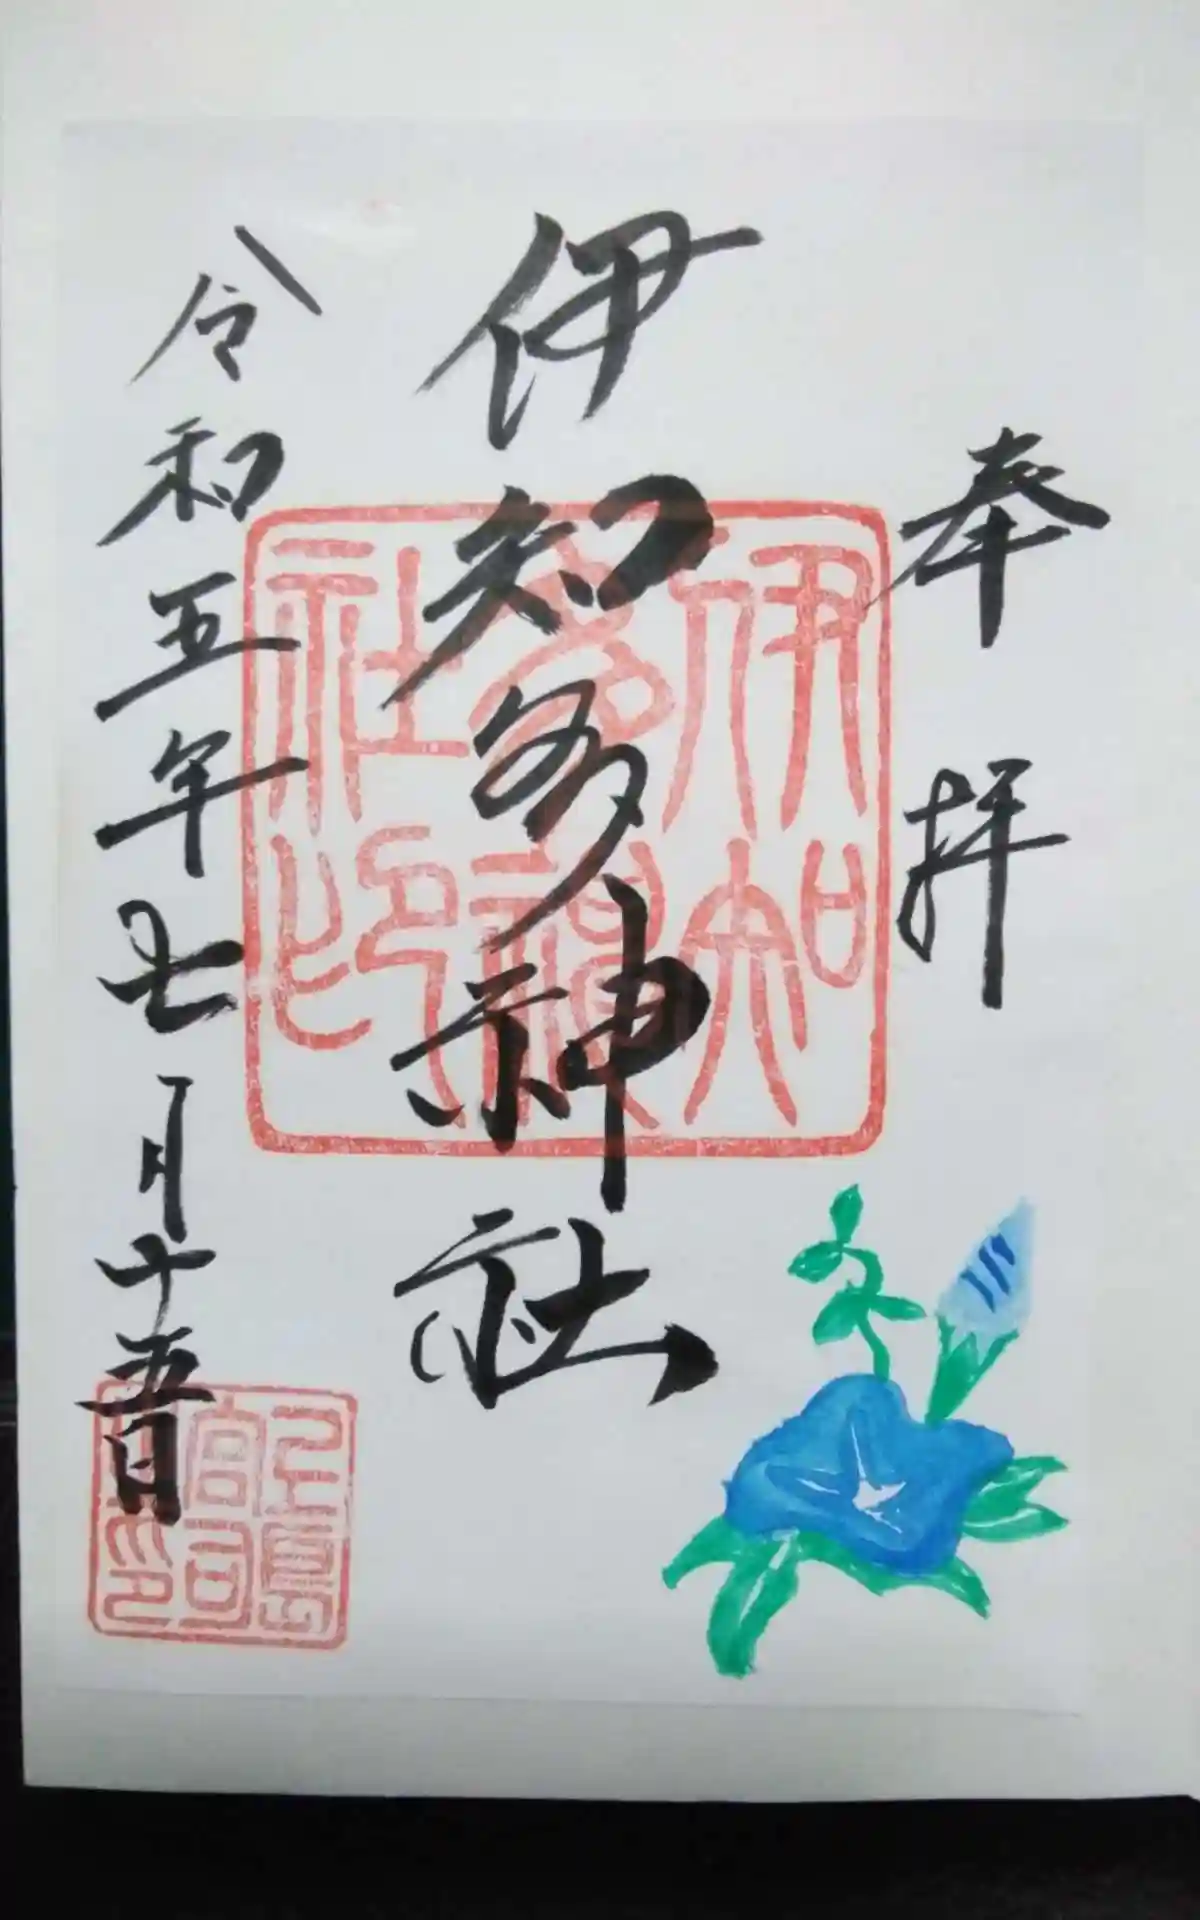 奉拝
伊知多神社
令和五年七月十五日
伊知多神社印